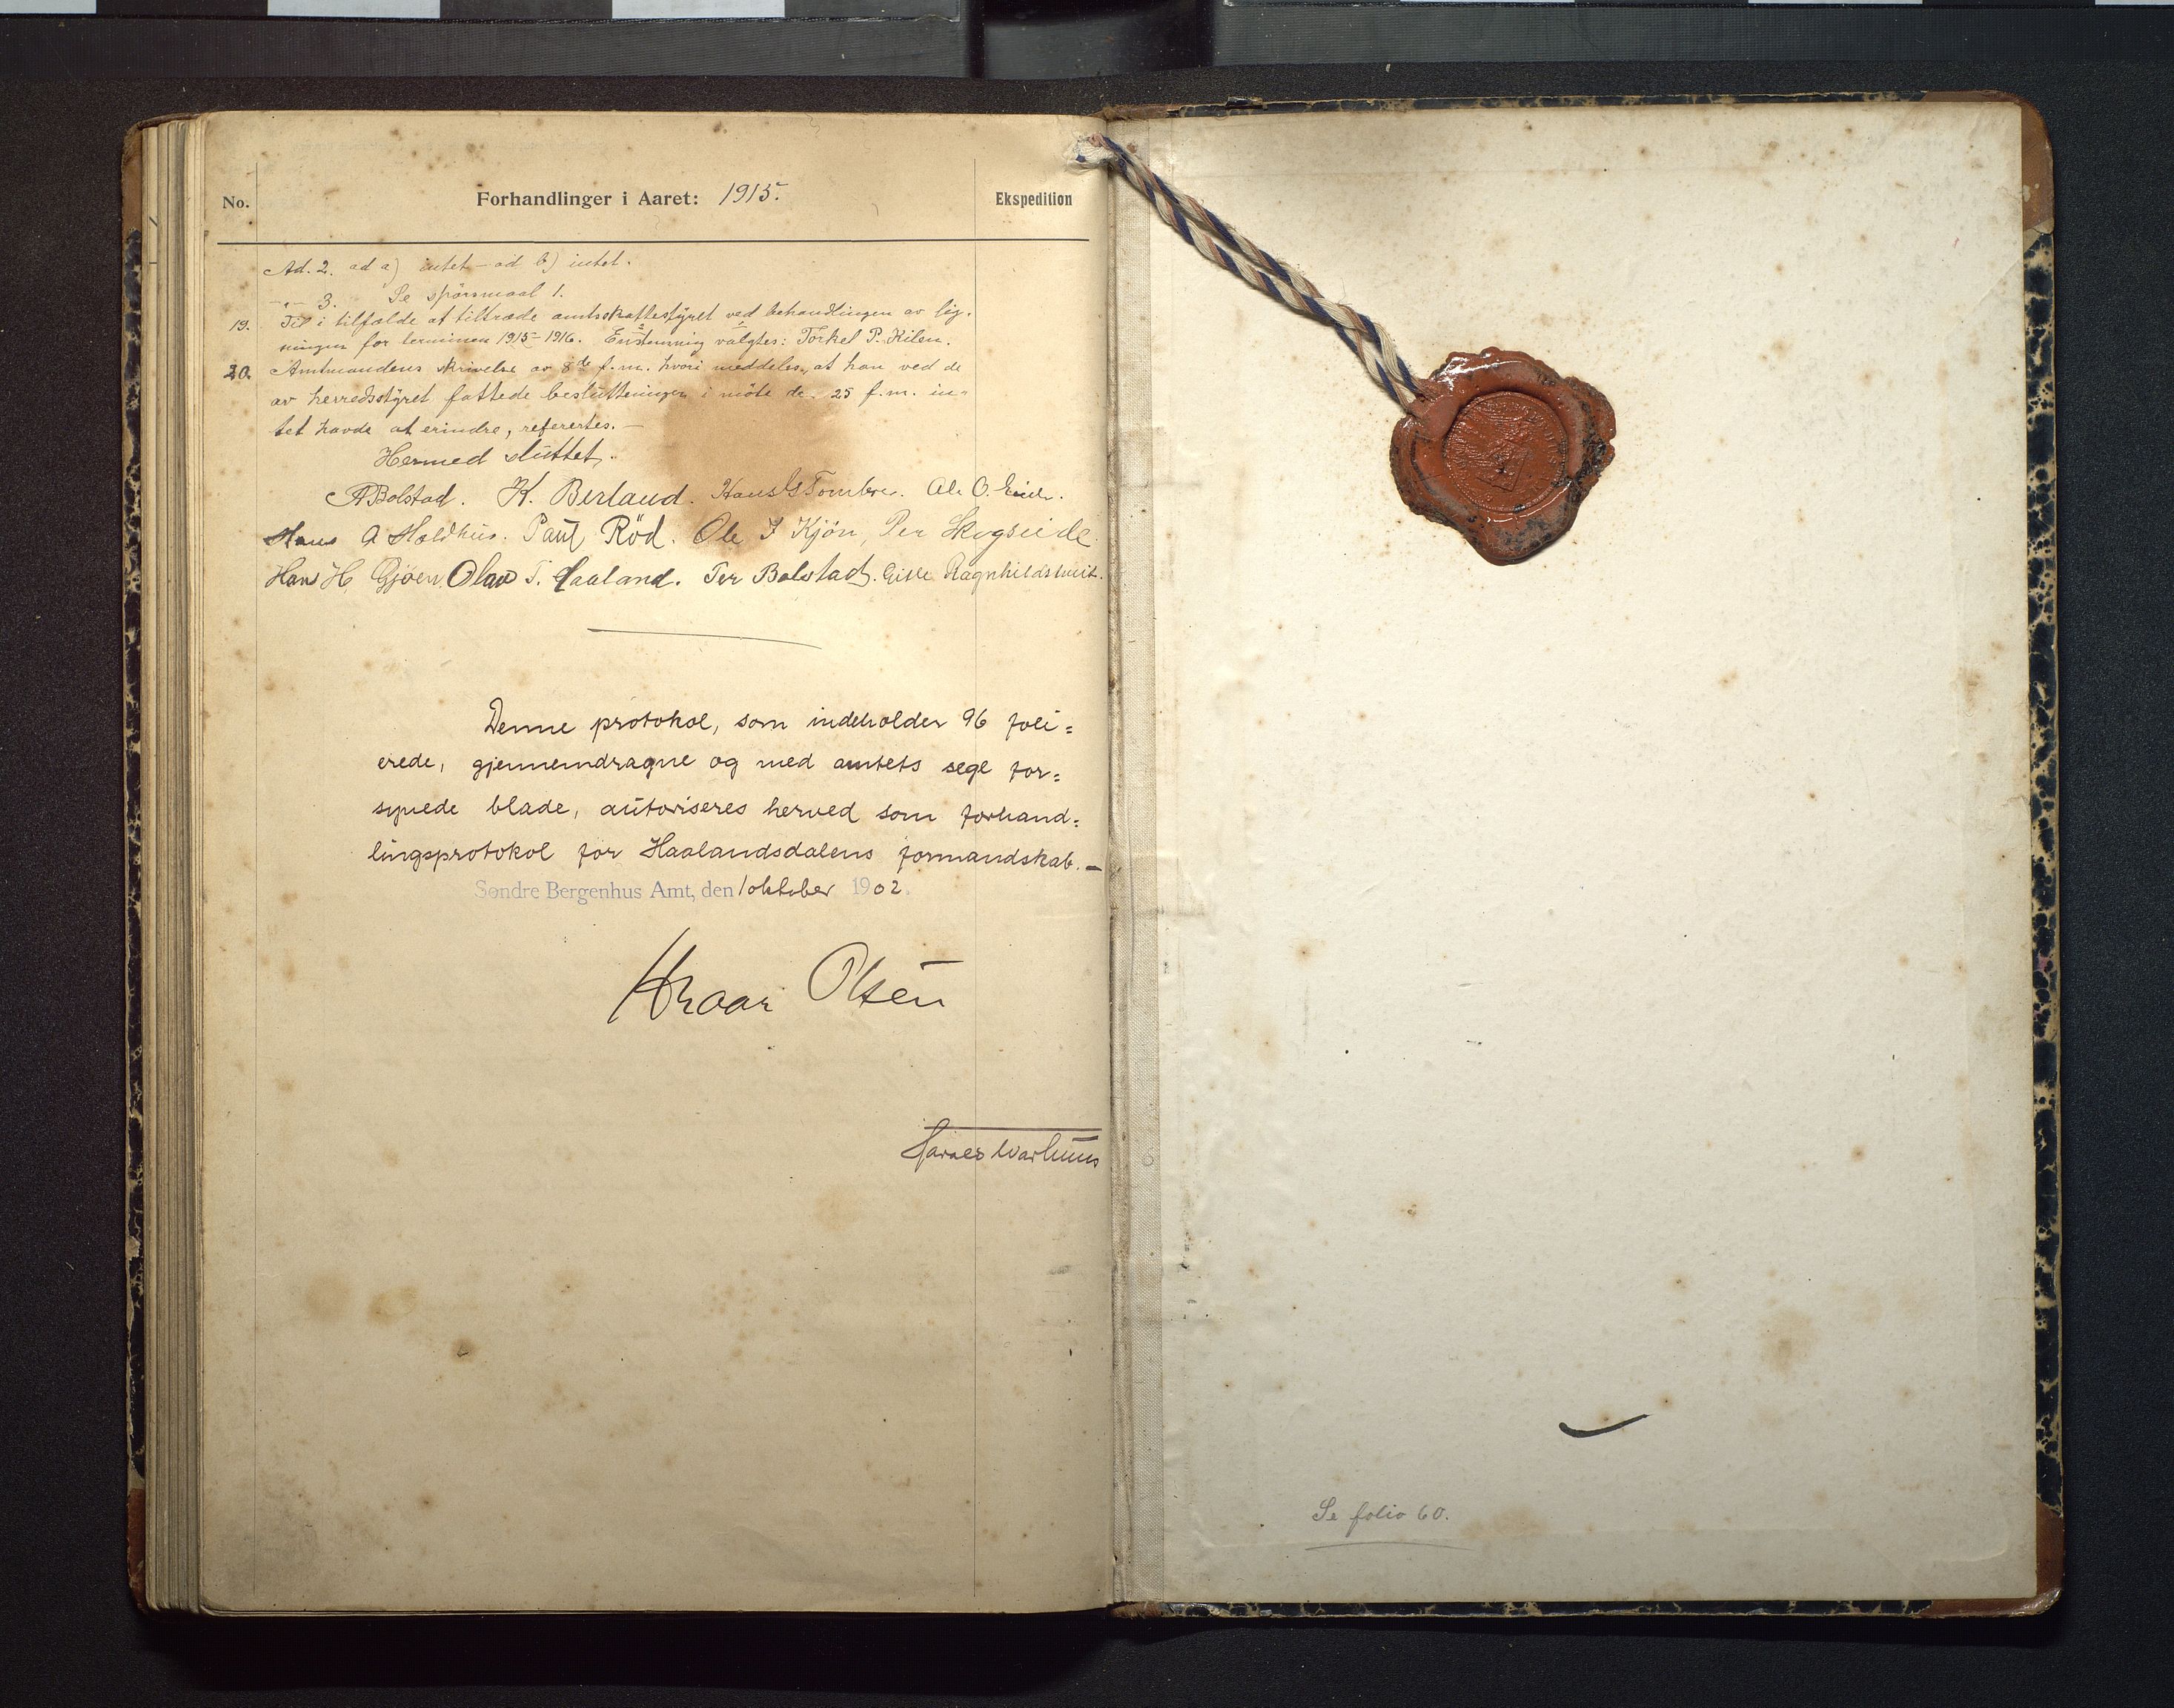 No. Forhandlinger i Aaret: 1915. Ekspedition
Ad. 2. ad a) intet – ad b) intet.
-„- 3. Se spörsmaal 1.
19. Til i tilfælde at tiltræde amtsskattestyret ved behandlingen av lig-
ningen for terminen 1915-1916. Enstemmig valgtes: Torkel P. Kilen.
20. Amtmandens skrivelse av 8de f.m. hvori meddeles, at han ved de
av herredsstyret fattede beslutninger i möte de. 25 f.m. in-
tet havde at erindre, refereres. –
Hermed sluttet.
A Bolstad. K. Berland. Hans G Tombre. Ole O.
Hans A Holdhus. Paul Röd. Ole I Kjön, Per Skogseide
Hans H. Gjöen. Olav T. Haaland. Per Bolstad. Gitle Ragnhildstveit.
Denne protokol, som indeholder 96 foli=
erede, gjennemdragne og med amtets segl for=
synede blade, autoriseres herved som forhand=
lingsprotokol for Haalandsdalens formandskab. –
Søndre Bergenhus Amt, den 1 oktober 1902.
Hroar Olsen
Se folio 60.